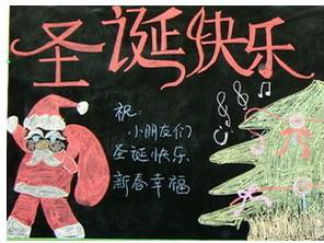 圣诞快乐
祝
小朋友们
圣诞快乐
新春幸福